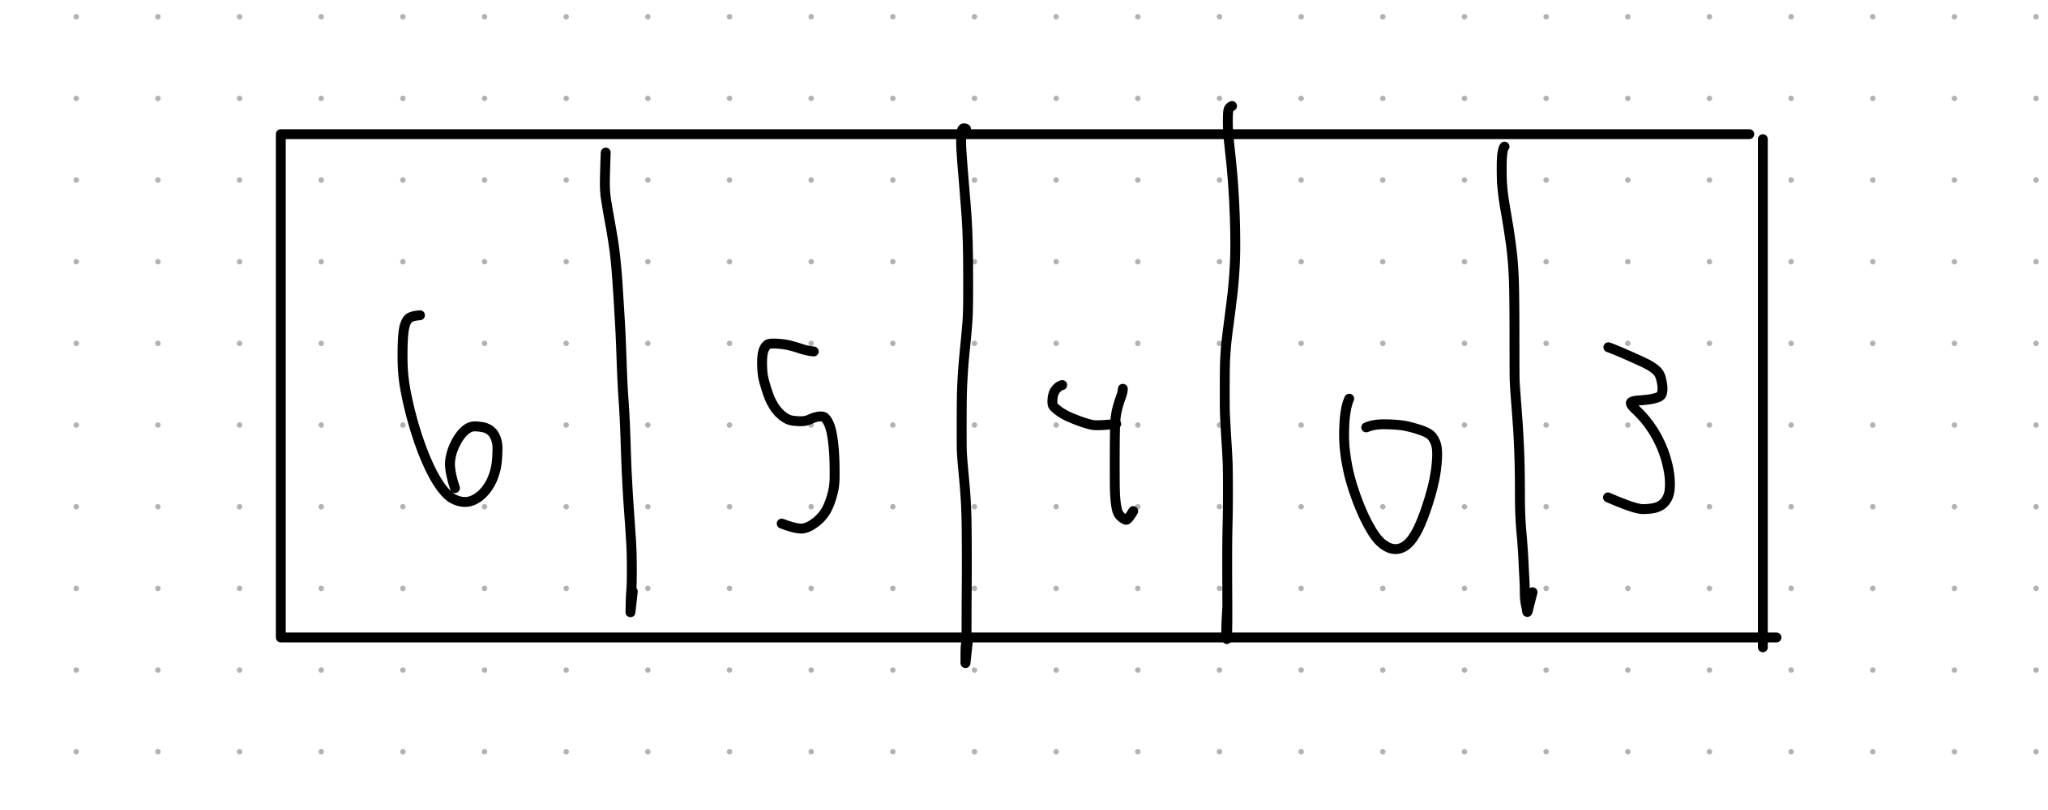 6 5 4 0 3